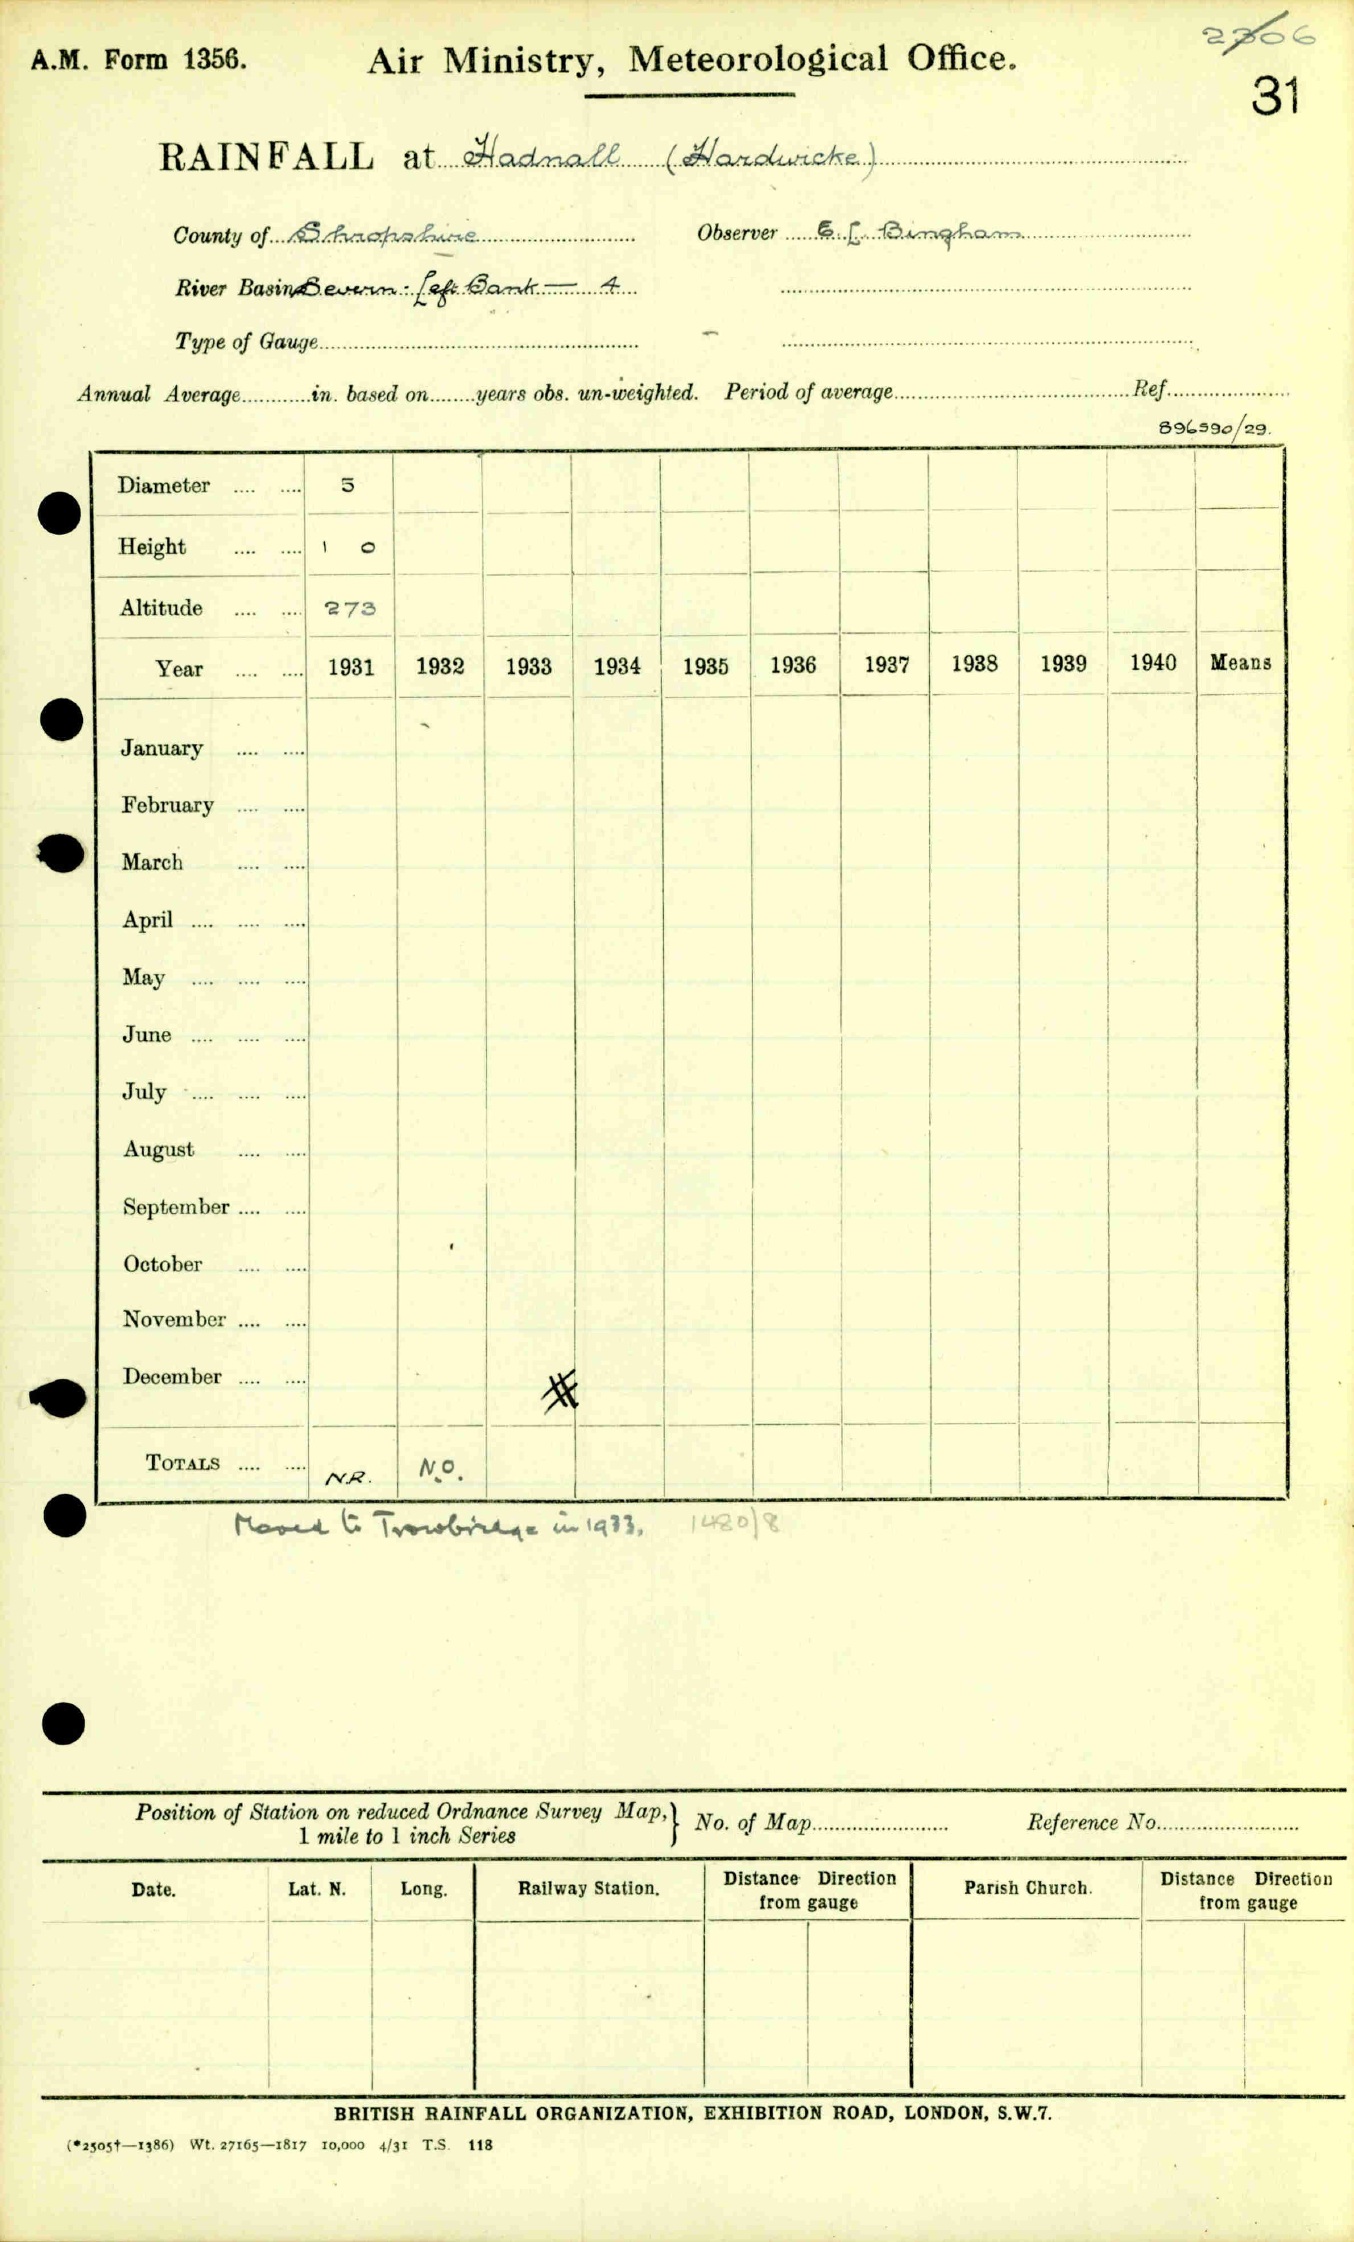 2306
A.M. Form 1356. Air Ministry, Meteorological Office.
31
RAINFALL at Hadnall (Hardwicke)
County of Shropshire Observer E. L. Bingham
River Basin Severn: Left Bank — 4
Type of Gauge
Annual Average in. based on years obs. un-weighted. Period of average Ref.
896590/29.
Diameter 5
Height 1 0
Altitude 273
Year 1931 1932 1933 1934 1935 1936 1937 1938 1939 1940 Means
January
February
March
April
May
June
July
August
September
October
November
December
TOTALS N.R. N.O.
Moved to Trowbridge in 1933. 1480/8
Position of Station on reduced Ordnance Survey Map,} No. of Map Reference No.
1 mile to 1 inch Series
Date. Lat. N. Long. Railway Station. Distance Direction from gauge Parish Church. Distance Direction from gauge
BRITISH RAINFALL ORGANIZATION, EXHIBITION ROAD, LONDON, S.W.7.
(*2505†—1386) Wt. 27165—1817 10,000 4/31 T.S. 118